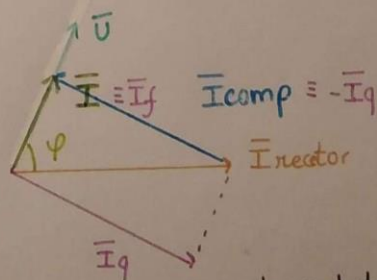 U̅
I̅ ≡ I̅f I̅comp ≡ -I̅q
φ
I̅reator
I̅q